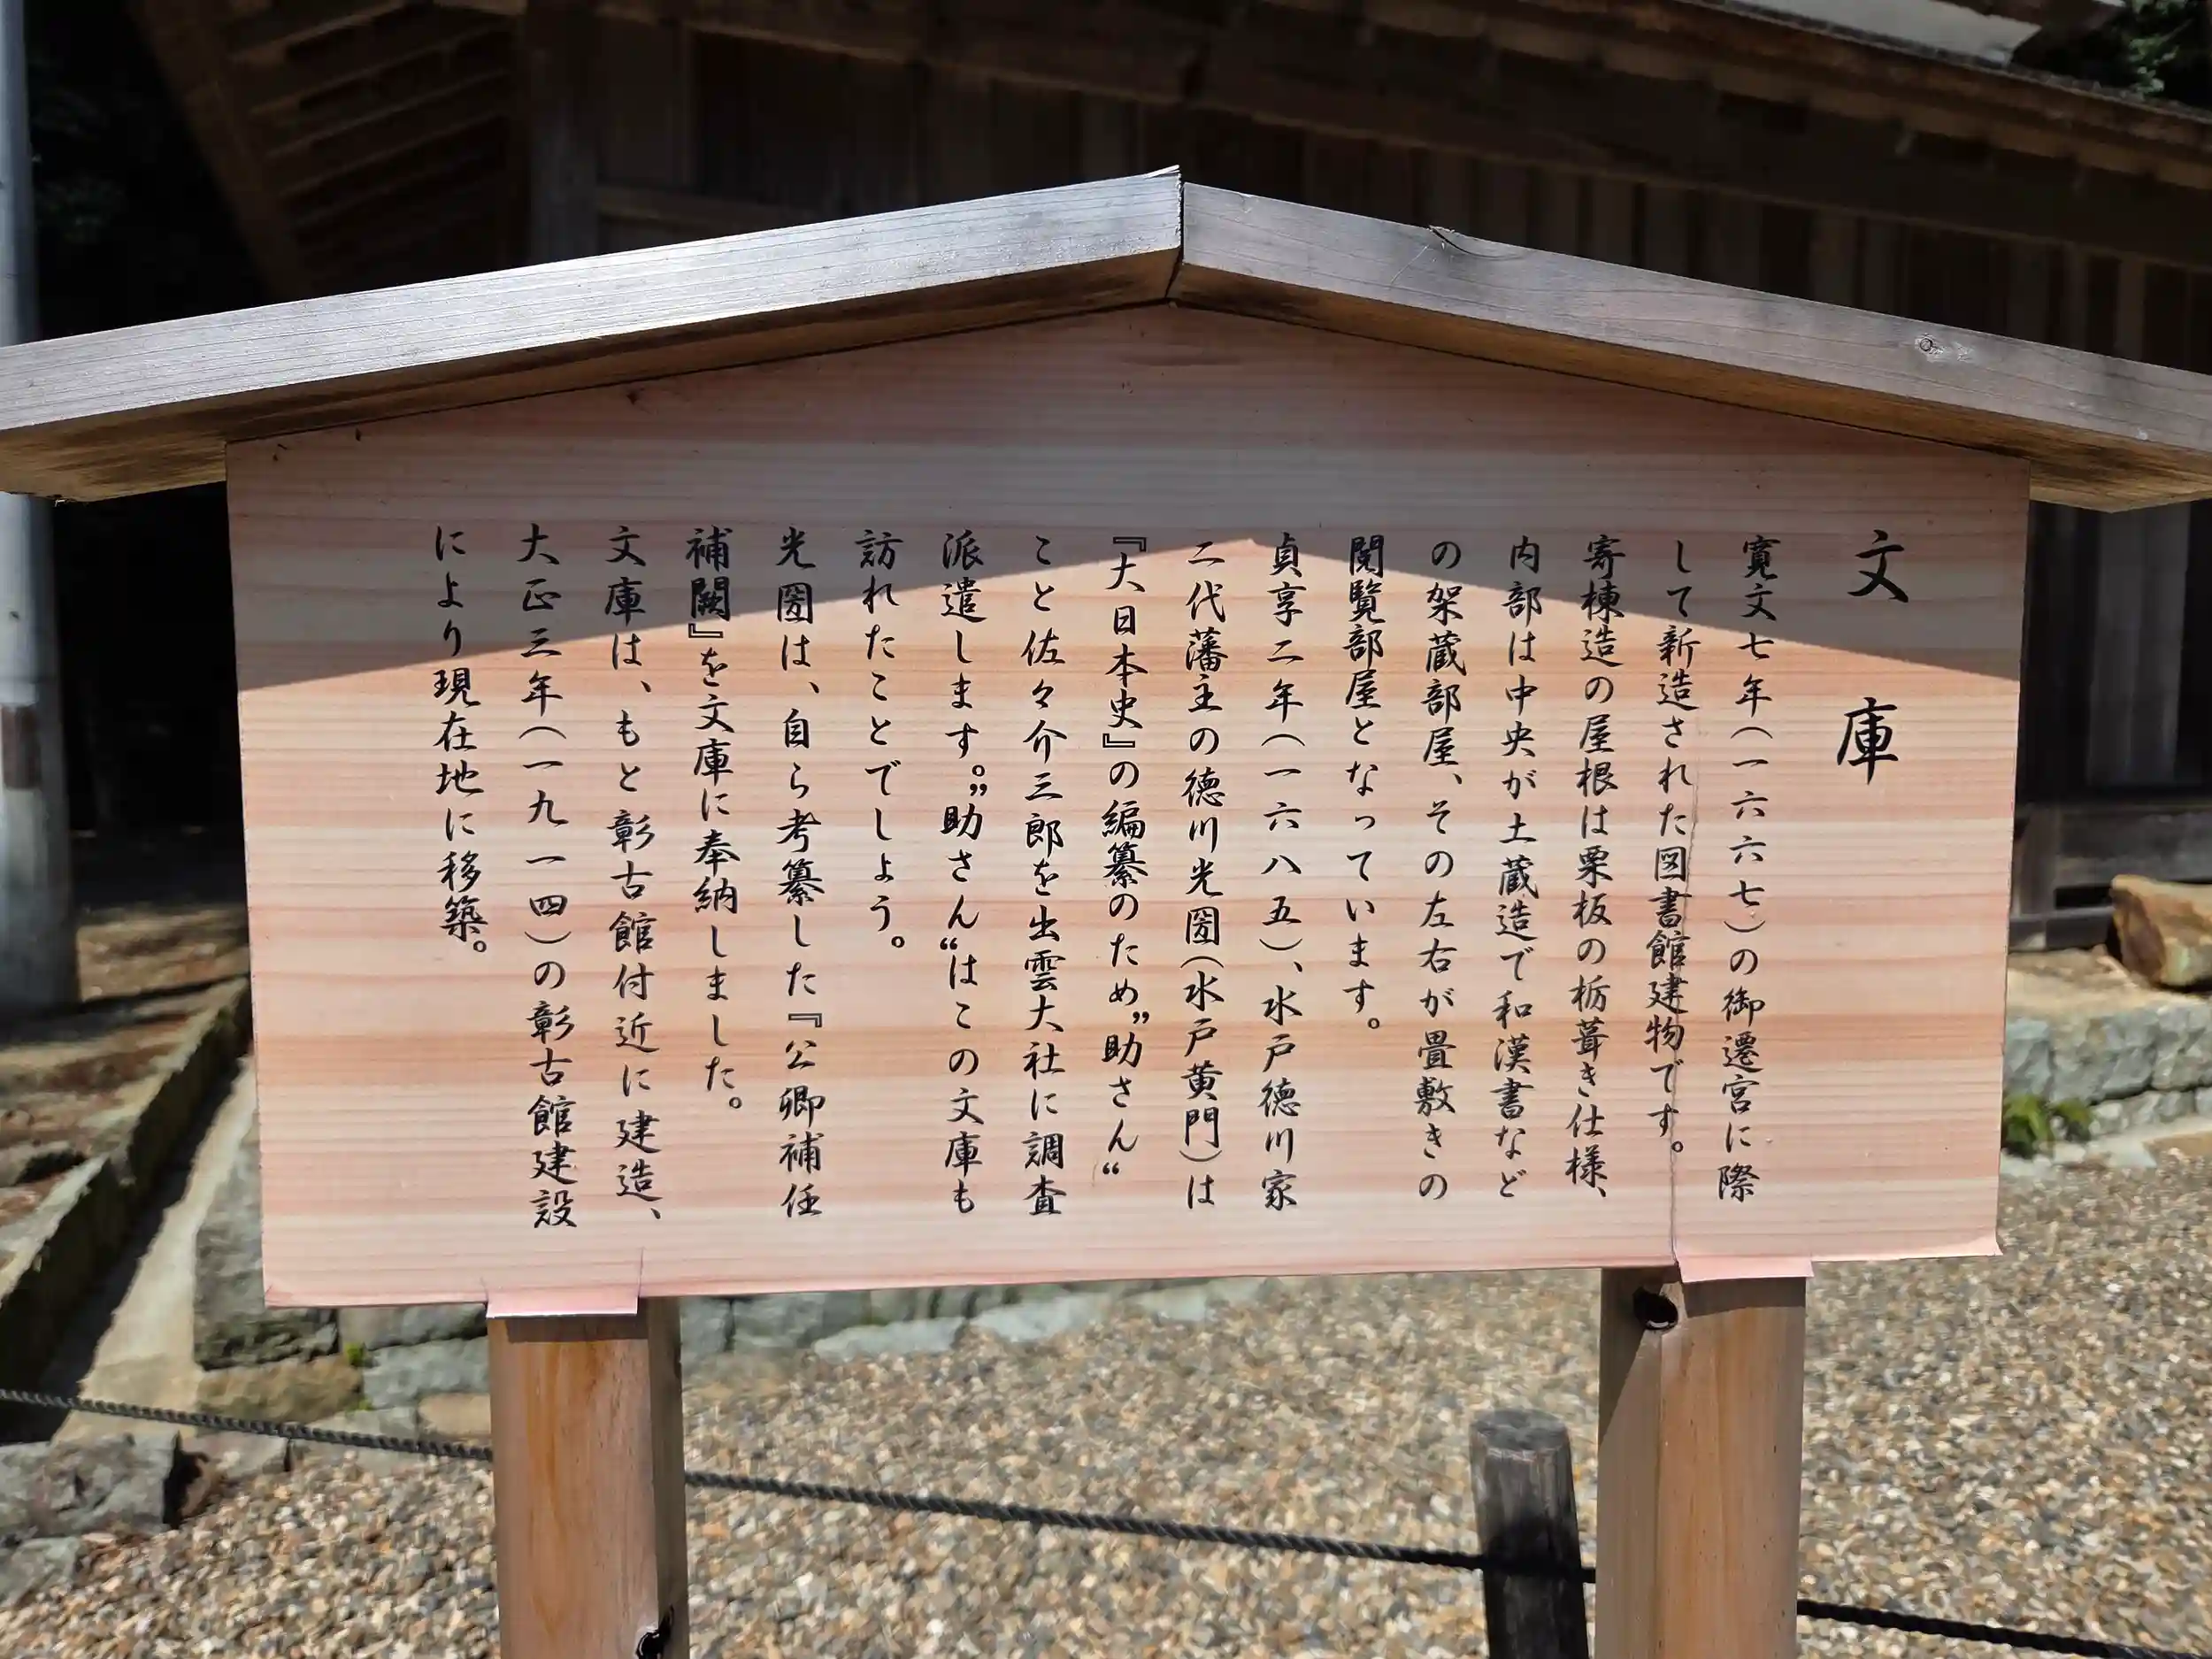 文庫
寛文七年(一六六七)の御遷宮に際
して新造された図書館建物です。
寄棟造の屋根は栗板の栃葺き仕様、
内部は中央が土蔵造で和漢書など
の架蔵部屋、その左右が畳敷きの
閲覧部屋となっています。
貞享二年(一六八五)、水戸徳川家
二代藩主の徳川光圀(水戸黄門)は
『大日本史』の編纂のため”助さん“
こと佐々介三郎を出雲大社に調査
派遣します。”助さん“はこの文庫も
訪れたことでしょう。
光圀は、自ら考纂した『公卿補任
補闕』を文庫に奉納しました。
文庫は、もと彰古館付近に建造、
大正三年(一九一四)の彰古館建設
により現在地に移築。